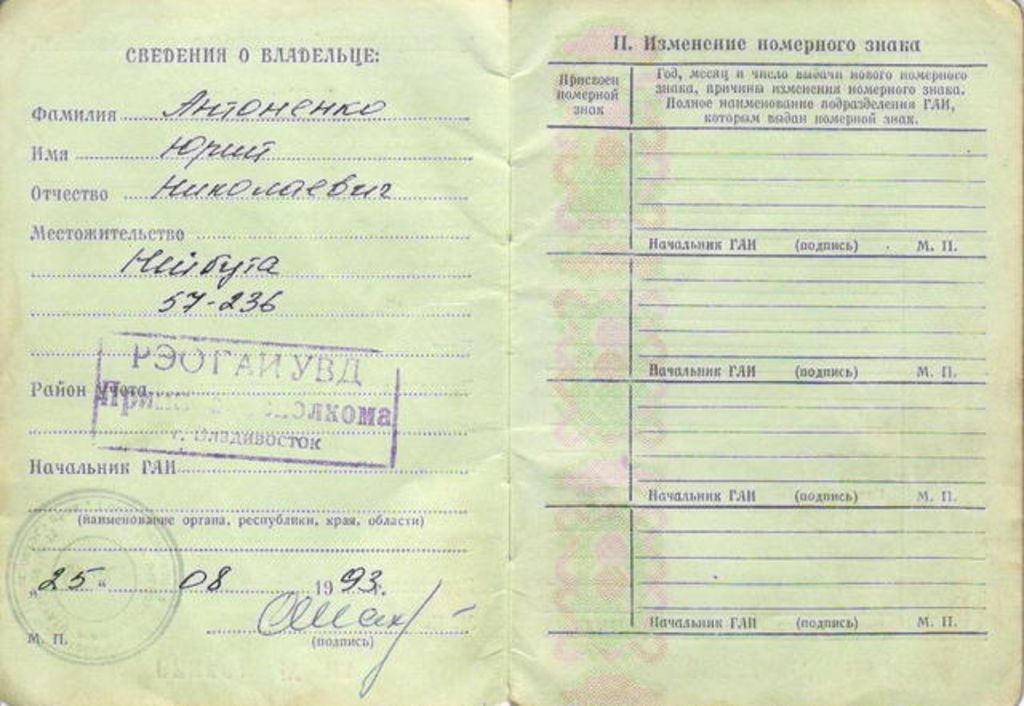 СВЕДЕНИЯ О ВЛАДЕЛЬЦЕ:
Фамилия Антоненко
Имя Юрий
Отчество Николаевич
Местожительство
Нейбута
57-236
РЭО ГАИ УВД
Район учета
г. Владивосток
Начальник ГАИ
(наименование органа, республики, края, области)
„25“ 08 1993г.
М. П.
(подпись)
II. Изменение номерного знака
Присвоен номерной знак
Год, месяц и число выдачи нового номерного
знака, причины изменения номерного знака.
Полное наименование подразделения ГАИ,
которым выдан номерной знак.
Начальник ГАИ (подпись) М. П.
Начальник ГАИ (подпись) М. П.
Начальник ГАИ (подпись) М. П.
Начальник ГАИ (подпись) М. П.